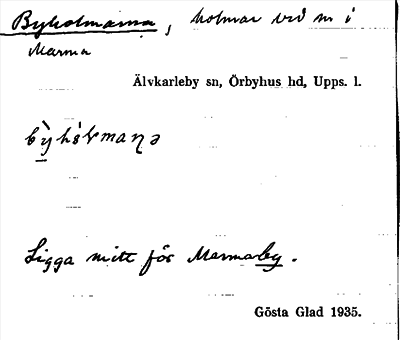 Byholmarna, holmar vid m i
Marma
Älvkarleby sn, Örbyhus hd, Upps. l.
Ligga mitt för Marmaby.
Gösta Glad 1935.